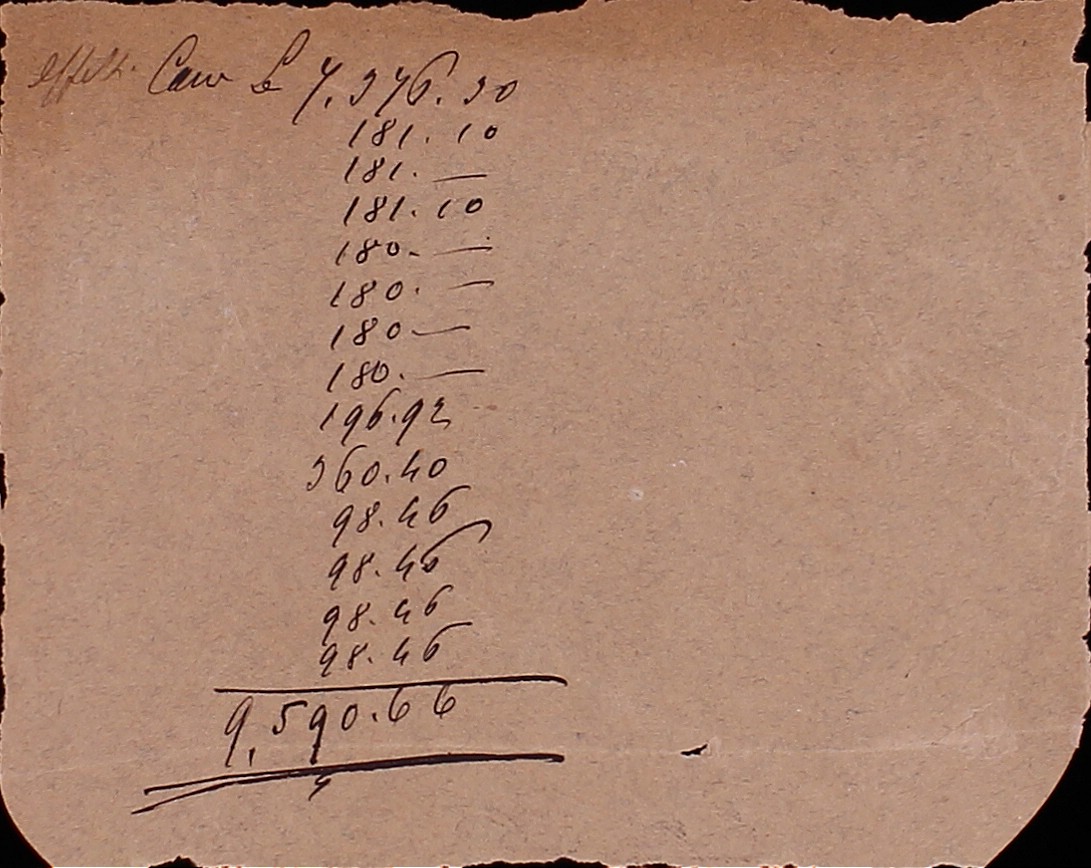 7.376.30
181.10
181.—
181.10
180.—
180.—
180—
180.—
196.92
360.40
98.46
98.46
98.46
98.46
9.590.66